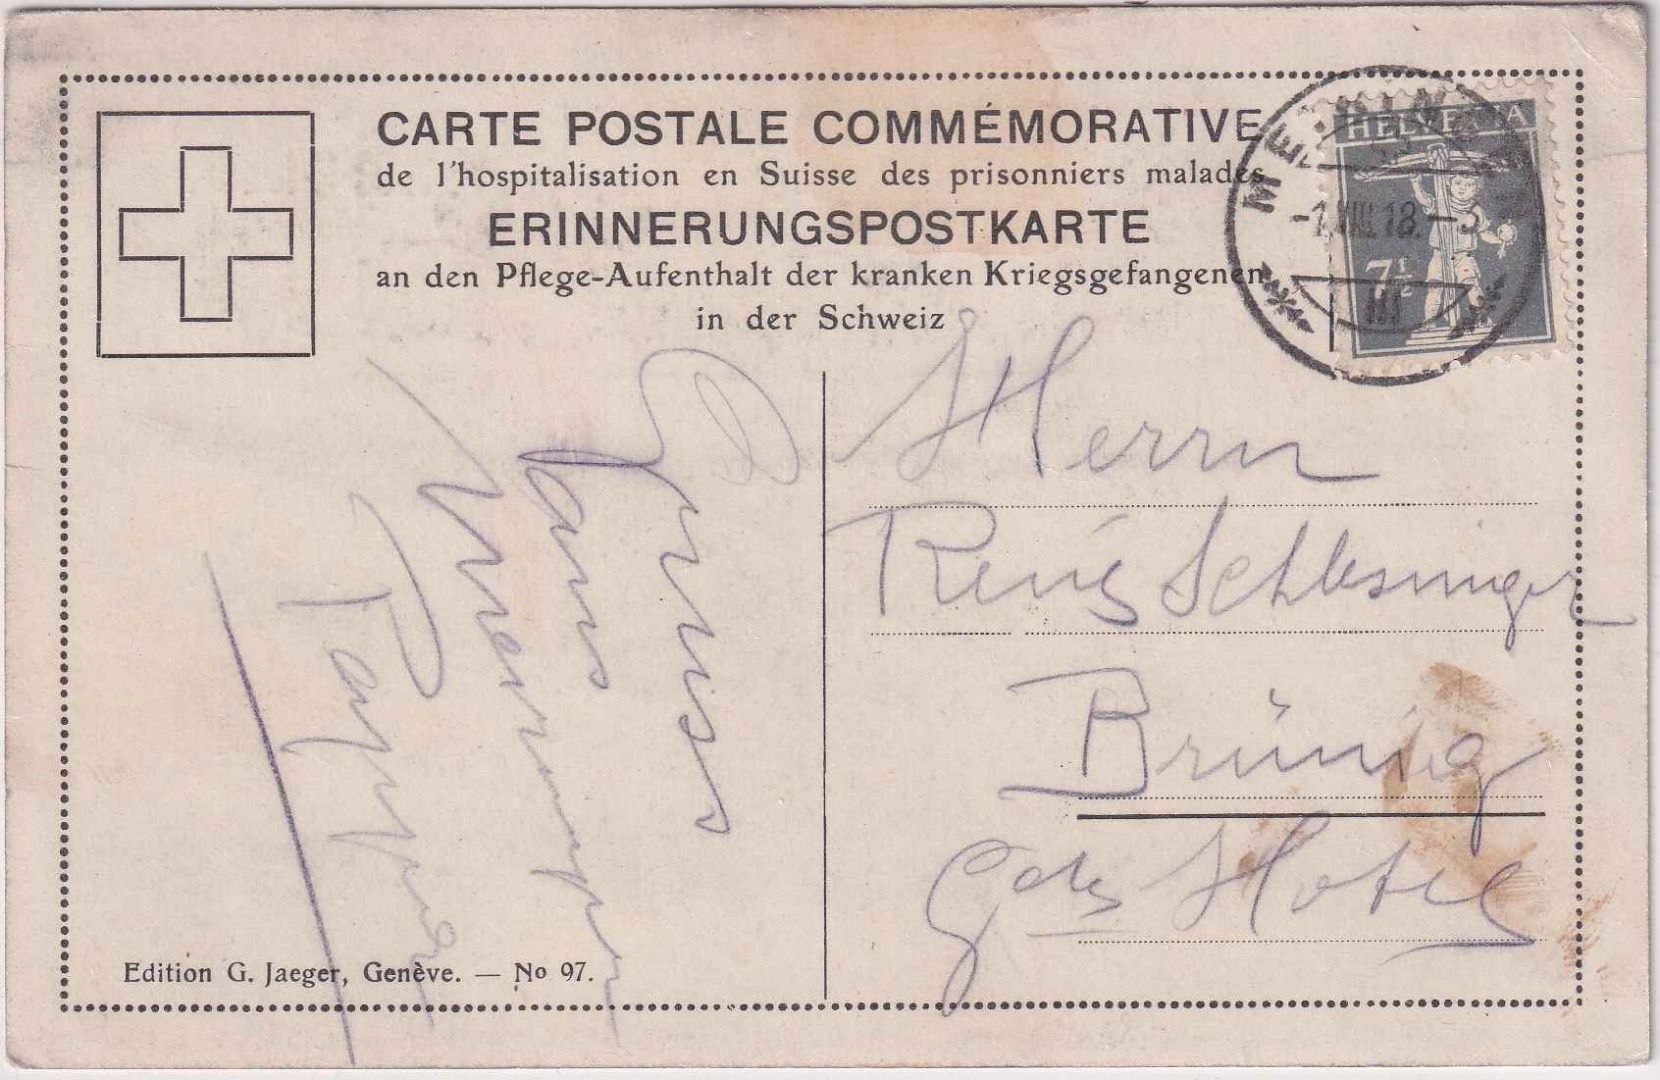 CARTE POSTALE COMMÉMORATIVE
de l'hospitalisation en Suisse des prisonniers malades
ERINNERUNGSPOSTKARTE
an den Pflege-Aufenthalt der kranken Kriegsgefangenen
in der Schweiz
HELVETIA
7½
-1.VIII.18.-
III
Herrn
René Schlesinger
Brünig
Hotel
Gruss
Edition G. Jaeger, Genève. — No 97.